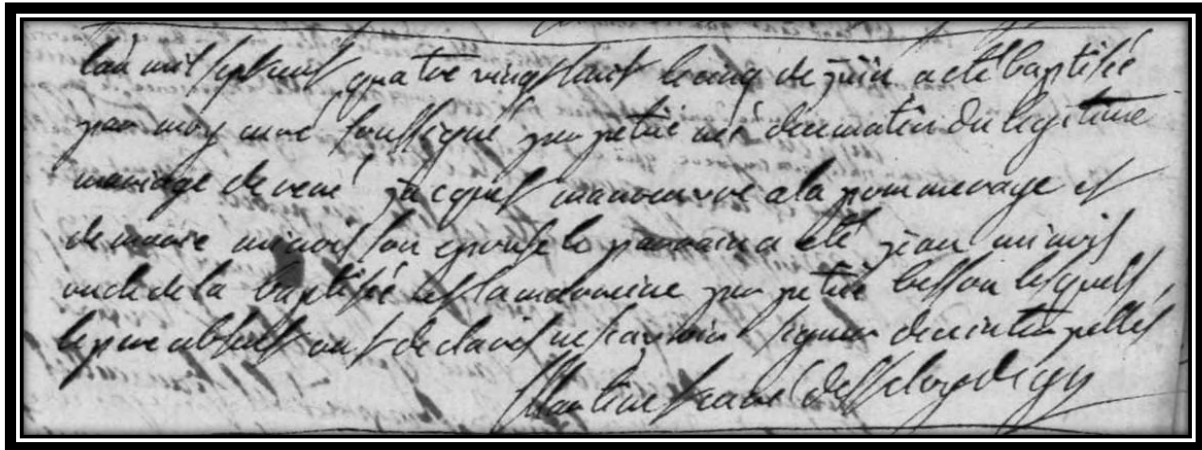 lan mil sept cent quatre vingt huit le cinq de juin a eté baptisée
par moy curé soussigné perpetue née de ce matin du legitime
mariage de rené jacquet manoeuvre a la pommeraye et
de marie mirvis son epouse le parrain a eté jean mirvis
oncle de la baptisée et la marraine perpetue besson lesquels
le pere absent ont declarés ne sçavoir signer de ce interpellés
curé